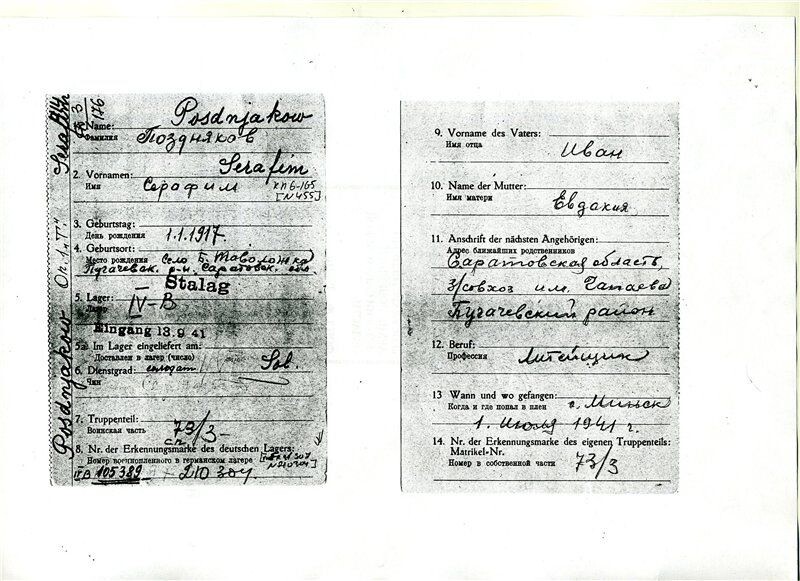 Posdnjakow
Name:
Фамилия Поздняков
Serafim
2. Vornamen:
Имя Серафим КП 6-165
[N 455]
3. Geburtstag:
День рождения 1.1.1917.
4. Geburtsort:
Место рождения Село Б. Таволожка
Пугачевск. р-н. Саратовск. обл.
Stalag
5. Lager: IV-B
Лагерь
Eingang 13.9.41
5a Im Lager eingeliefert am:
Доставлен в лагерь (число)
6. Dienstgrad: солдат Sol.
Чин
7. Truppenteil: 73/3
Воинская часть
сп.
8. Nr. der Erkennungsmarke des deutschen Lagers:
Номер военнопленного в германском лагере
IVB 105389 210 304
Posdnjakow Serafim
9. Vorname des Vaters:
Имя отца Иван
10. Name der Mutter:
Имя матери Евдакия
11. Anschrift der nächsten Angehörigen:
Адрес ближайших родственников
Саратовская область,
з/совхоз им. Чапаева
Пугачевский район
12. Beruf:
Профессия Литейщик
13 Wann und wo gefangen:
Когда и где попал в плен г. Минск
1. Июля 1941 г.
14. Nr. der Erkennungsmarke des eigenen Truppenteils:
Matrikel-Nr.
Номер в собственной части 73/3